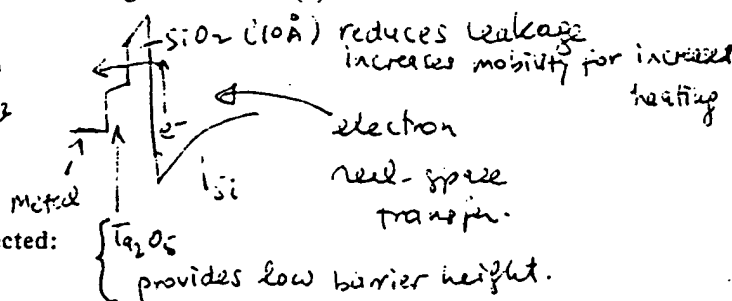 SiO2 (10Å) reduces leakage
increases mobility for increased
heating
e-
electron
real-space
transfer.
Si
Metal
ected:
Ta2O5
provides low barrier height.